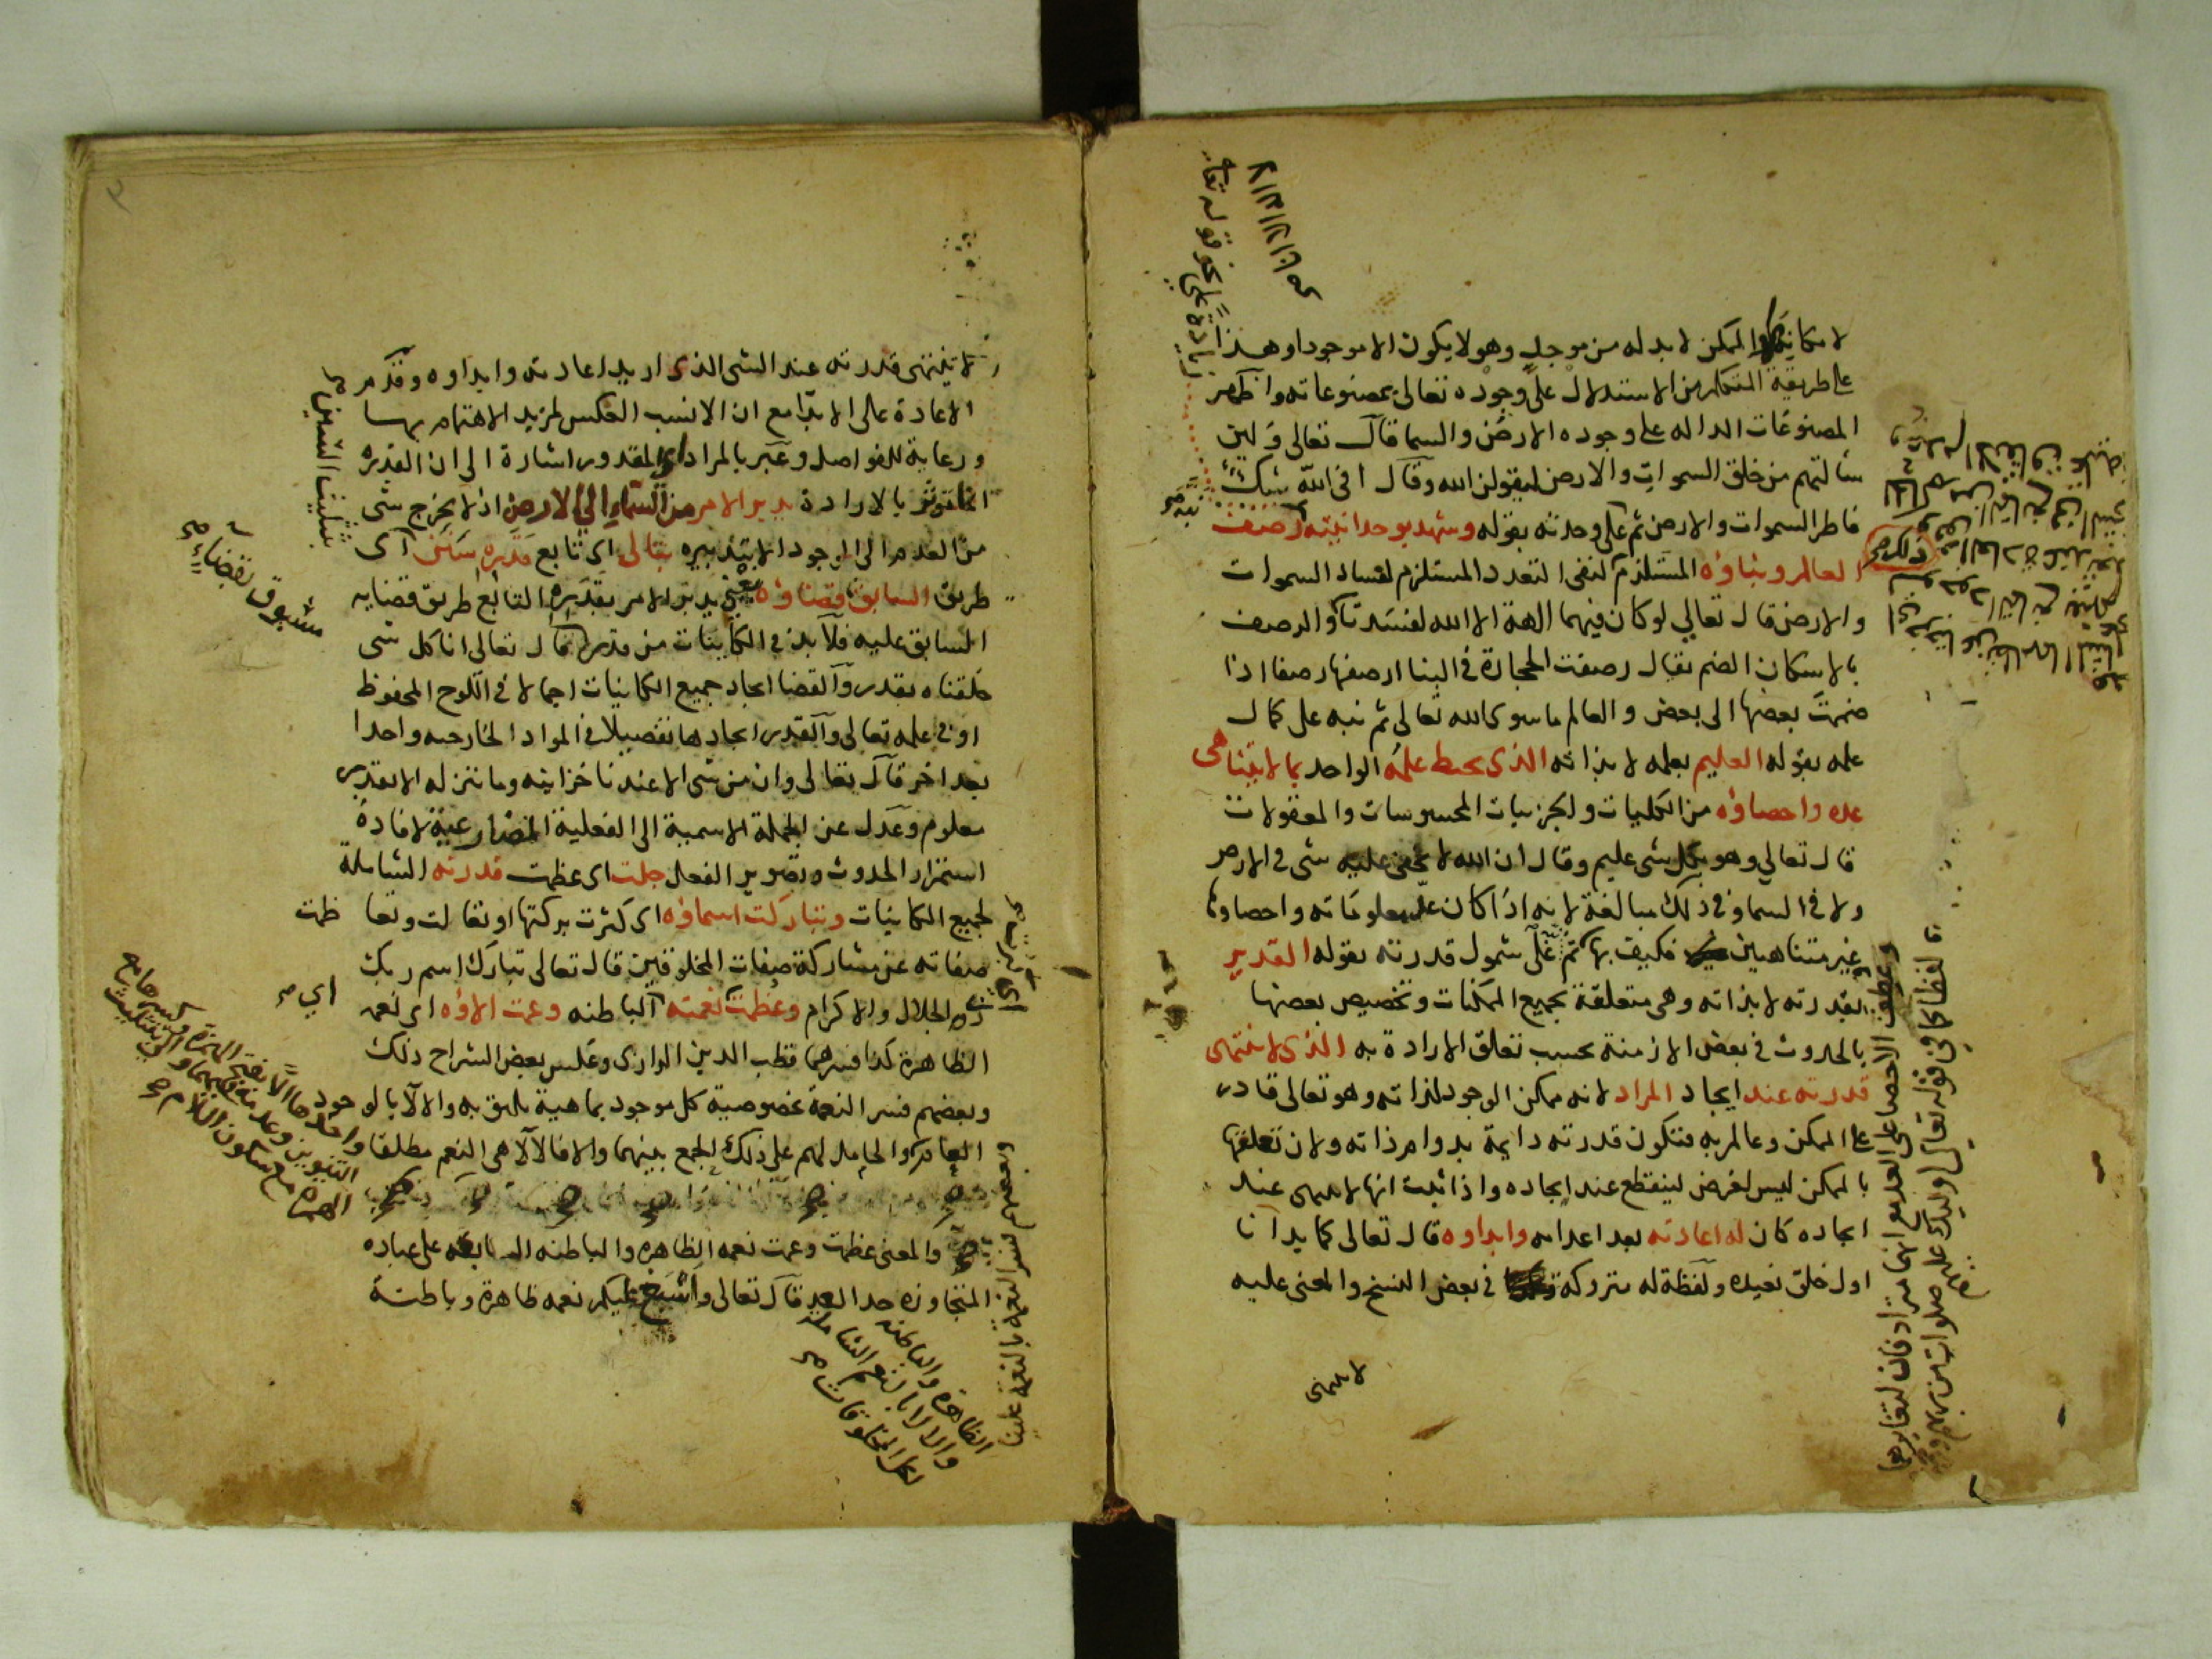 لامكانيتها والممكن لابد له من موجد وهو لا يكون الا موجودا وهذا
على طريقة المتكلمين الاستدلال على وجوده تعالى بمصنوعاته واظهر
المصنوعات الداله على وجوده الارض والسما قال تعالى ولين
سالتهم من خلق السموات والارض ليقولن الله وقال افي الله شك
فاطر السموات والارض ثم على وحدته بقوله وشهد بوحدانيته رصف
العالم وبناؤه المستلزم لنفى التعدد المستلزم لفساد السموات
والارض قال تعالي لو كان فيهما الهة الا الله لفسدتا والرصف
بالاسكان الضم يقال رصفت الحجارة في البنا ارصفها رصفا اذا
ضممت بعضها الى بعض والعالم ماسوى الله تعالى ثم نبه على كمال
علمه بقوله العليم بعلمه لا بذاته الذى يحيط علمه الواحد بما لا يتناهى
عده واحصاؤه من الكليات والجزييات المحسوسات والمعقولات
قال تعالي وهو بكل شى عليم وقال ان الله لا يخفى عليه شى في الارض
ولا في السما وفي ذلك مبالغة لانه اذا كان معلوماته واحصاوها
غير متناهيين فكيف بها ثم على شمول قدرته بقوله القدير
بقدرته لا بذاته وهى متعلقة بجميع الممكنات وتخصيص بعضها
بالحدوث في بعض الازمنة بحسب تعلق الارادة به الذى لا تنتهى
قدرته عند ايجاد المراد لانه ممكن الوجود لذاته وهو تعالى قادر
على الممكن وعالم به فتكون قدرته دايمة بدوام ذاته ولان تعلقها
بالممكن ليس لغرض لينقطع عند ايجاده واذا ثبت انها لا تنتهى عند
ايجاده كان له اعادته بعد اعدامه وابداوه قال تعالى كما بدأنا
اول خلق نعيده ولفظة له متروكة في بعض النسخ والمعنى عليه
لا تنتهى
لا تنتهى قدرته عند الشى الذى اريد اعادته وابداوه وقدم
الاعادة على الابدا مع ان الانسب العكس لمزيد الاهتمام بها
ورعاية للفواصل وعبر بالمراد المقدور اشارة الى ان القدرة
بالارادة يدبر الامر من السماء الى الارض اذ لا يخرج شى
من العدم الى الوجود الا بتدبيره بتالي اى تابع قدره سنن اى
طريق السابق قضاؤه يعني يدبر الامر بقدره التابع طريق قضايه
السابق عليه فلا بد في الكاينات من قدر قال تعالى انا كل شى
خلقناه بقدر والقضا ايجاد جميع الكاينات اجمالا في اللوح المحفوظ
او في علمه تعالى والقدر ايجادها تفصيلا في المواد الخارجيه واحدا
بعد اخر قال تعالى وان من شى الا عندنا خزاينه وما ننزله الا بقدر
معلوم وعدل عن الجملة الاسمية الى الفعلية المضارعية لافادة
استمرار الحدوث وتصوير الفعل جلت اى عظمت قدرته الشاملة
لجميع الكاينات وتباركت اسماؤه اى كثرت بركتها او تعالت وتعاظمت
صفاته عن مشاركة صفات المخلوقين قال تعالى تبارك اسم ربك
ذى الجلال والاكرام وعظمت نعمته الباطنه وعمت الاؤه اى نعمه
الظاهرة كذا فسرهما قطب الدين الرازى وعكس بعض الشراح ذلك
وبعضهم فسر النعمة بخصوصية كل موجود بما هية يليق به والالآ بالوجود
العام والحامل لهم على ذلك الجمع بينهما والا فالالآ هى النعم مطلقا
والمعنى عظمت وعمت نعمه الظاهره والباطنه السابغه على عباده
المتجاوزه حد العد قال تعالى واسبغ عليكم نعمه ظاهرة وباطنة
مسبوق بقضائه
بتثليث السين
وبعضهم فسر النعمة بالنعمة علينا
الظاهرة والباطنه
والالا بالنعم الشاملة
لكل المخلوقات